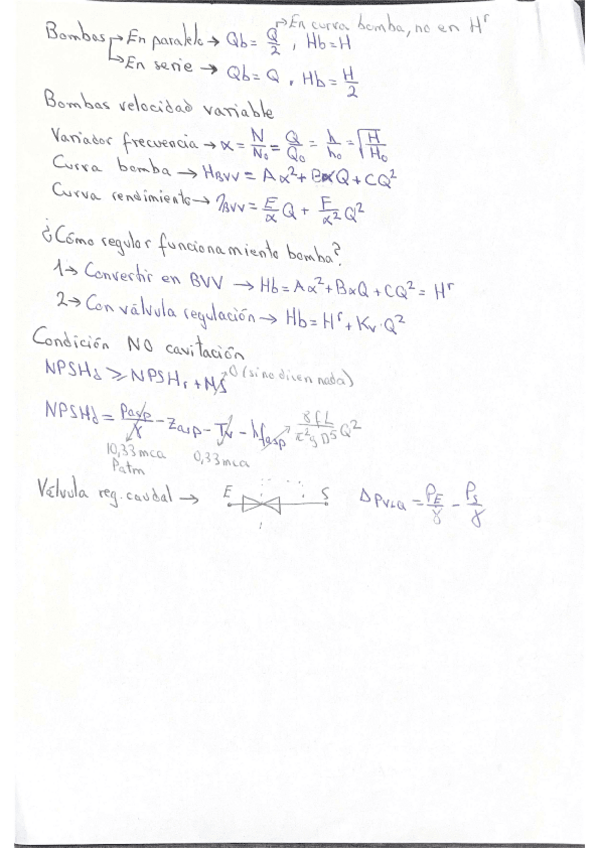 Bombas → En paralelo → Qb = Q/2 , Hb = H → En curva bomba, no en H^r
→ En serie → Qb = Q , Hb = H/2
Bombas velocidad variable
Variador frecuencia → α = N/N₀ = Q/Q₀ = h/h₀ = √(H/H₀)
Curva bomba → H_BVV = Aα² + BαQ + CQ²
Curva rendimiento → η_BVV = E/α Q + F/α² Q²
¿Cómo regular funcionamiento bomba?
1 → Convertir en BVV → Hb = Aα² + BαQ + CQ² = H^r
2 → Con válvula regulación → Hb = H^r + Kv·Q²
Condición NO cavitación
NPSHd ≥ NPSHr + NS → 0 (si no dicen nada)
NPSHd = Pasp/γ - Zasp - Tv - hfasp → 8fL/π²gD⁵ Q²
10,33 mca 0,33 mca
Patm
Válvula reg. caudal → E S ΔPVLQ = PE/γ - PS/γ